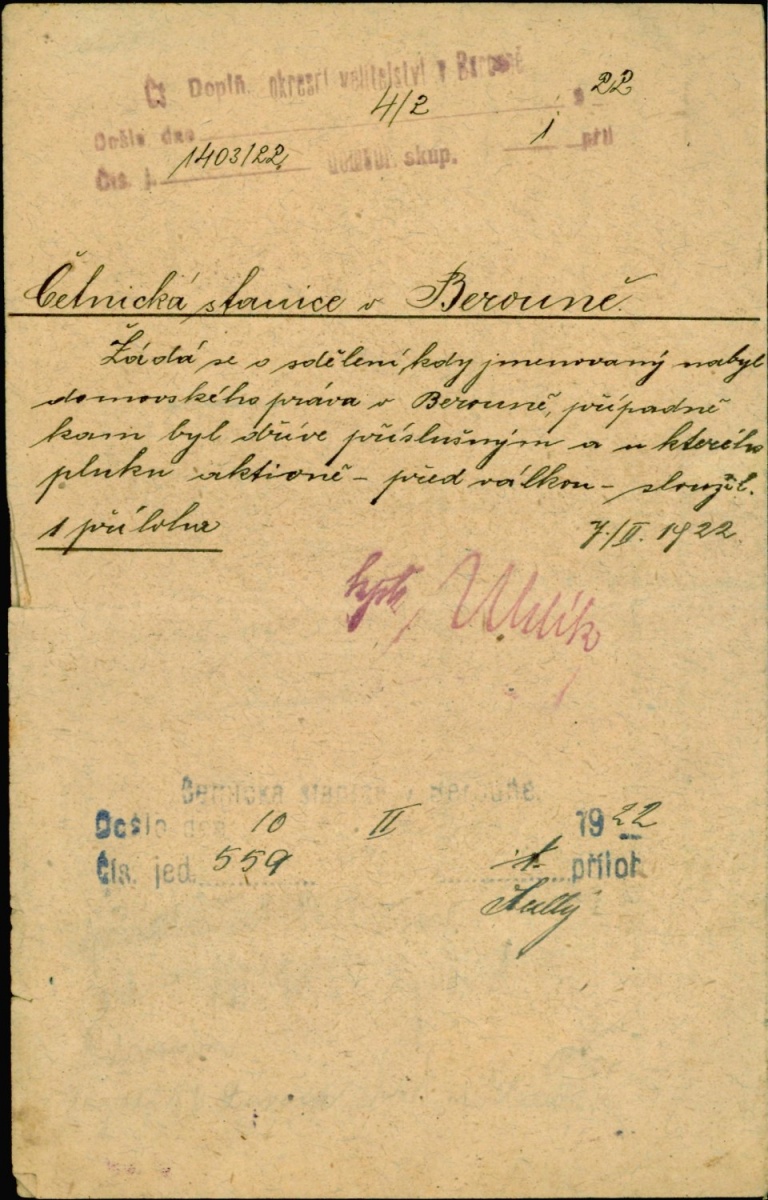 Čs Doplň. okresní velitelství v Berouně
Došlo dne 4/2 22
Čís. j. 1403/22 skup. 1 příl
Četnická stanice v Berouně.
Žádá se o sdělení, kdy jmenovaný nabyl
domovského práva v Berouně, případně
kam byl dříve příslušným a u kterého
pluku aktivně - před válkou - sloužil.
1 příloha 7./II. 1922.
hptk. Uhlík
Četnická stanice v Berouně.
Došlo dne 10 II 1922
Čís. jed. 559 příloh